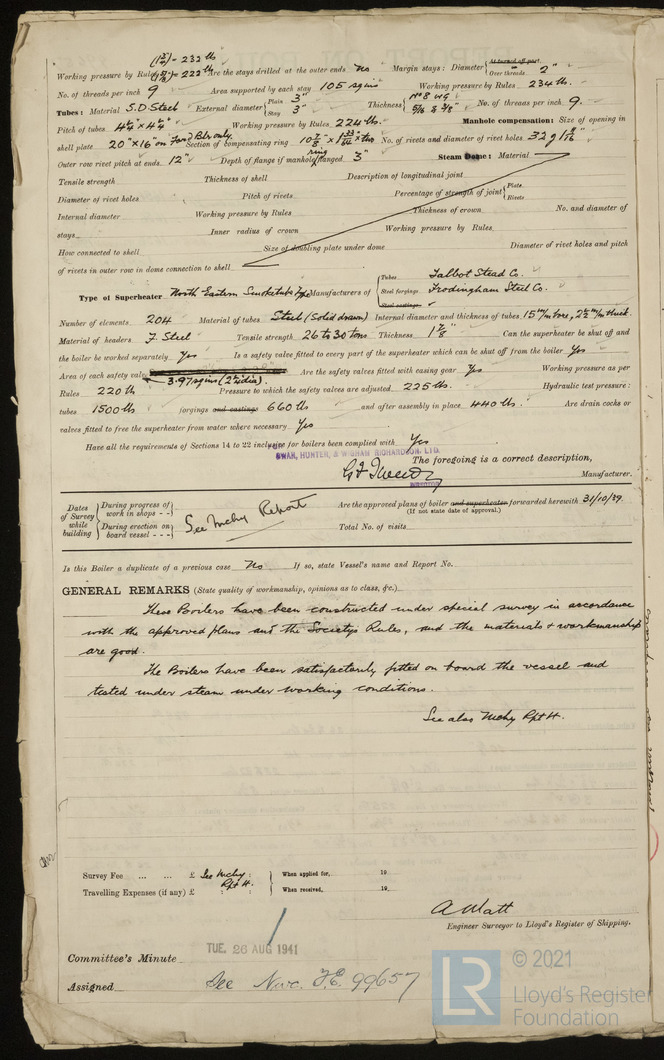 (1¾) - 232 lb
Working pressure by Rules 222 lb Are the stays drilled at the outer ends No Margin stays: Diameter { At turned off part, Over threads 2"
No. of threads per inch 9 Area supported by each stay 105 sq ins Working pressure by Rules 234 lb.
Tubes: Material S.D Steel External diameter { Plain 3" Stay 3" Thickness { No 8 WG 5/16 & 3/8" No. of threads per inch 9.
Pitch of tubes 4¼" x 4¼" Working pressure by Rules 224 lb. Manhole compensation: Size of opening in
shell plate 20" x 16" on Ford Blr only. Section of compensating ring No. of rivets and diameter of rivet holes
Outer row rivet pitch at ends 12" Depth of flange if manhole ring flanged 3" Steam Dome: Material
Tensile strength Thickness of shell Description of longitudinal joint
Diameter of rivet holes Pitch of rivets Percentage of strength of joint { Plate Rivets
Internal diameter Working pressure by Rules Thickness of crown No. and diameter of
stays Inner radius of crown Working pressure by Rules
How connected to shell Size of doubling plate under dome Diameter of rivet holes and pitch
of rivets in outer row in dome connection to shell
Type of Superheater North Eastern Smoketube Type Manufacturers of { Tubes Talbot Stead Co.
Steel forgings Frodingham Steel Co.
Steel castings
Number of elements 204 Material of tubes Steel (Solid drawn) Internal diameter and thickness of tubes 15 m/m bore, 2½ m/m thick.
Material of headers F. Steel Tensile strength 26 to 30 tons Thickness 1⅞" Can the superheater be shut off and
the boiler be worked separately Yes Is a safety valve fitted to every part of the superheater which can be shut off from the boiler Yes
Area of each safety valve 3.97 sq ins (2¼ dia). Are the safety valves fitted with easing gear Yes Working pressure as per
Rules 220 lb Pressure to which the safety valves are adjusted 225 lb. Hydraulic test pressure:
tubes 1500 lb forgings and castings 660 lb and after assembly in place 440 lb. Are drain cocks or
valves fitted to free the superheater from water where necessary Yes
Have all the requirements of Sections 14 to 22 inclusive for boilers been complied with Yes
FOR
SWAN, HUNTER, & WIGHAM RICHARDSON, LTD.
The foregoing is a correct description,
Manufacturer.
DIRECTOR
Dates of Survey while building { During progress of work in shops - - During erection on board vessel - - - } See Mchy Report
Are the approved plans of boiler and superheater forwarded herewith 31/10/39.
(If not state date of approval.)
Total No. of visits
Is this Boiler a duplicate of a previous case No If so, state Vessel's name and Report No.
GENERAL REMARKS (State quality of workmanship, opinions as to class, &c.)
These Boilers have been constructed under special survey in accordance
with the approved plans and the Society's Rules, and the materials & workmanship
are good.
The Boilers have been satisfactorily fitted on board the vessel and
tested under steam under working conditions.
See also Mchy Rpt 4.
Survey Fee ... ... £ See Mchy: When applied for, 19
Rpt 4.
Travelling Expenses (if any) £ : : When received, 19
A Watt
Engineer Surveyor to Lloyd's Register of Shipping.
Committee's Minute TUE. 26 AUG 1941
Assigned See Nwc. F.E. 99657
LR © 2021
Lloyd's Register
Foundation